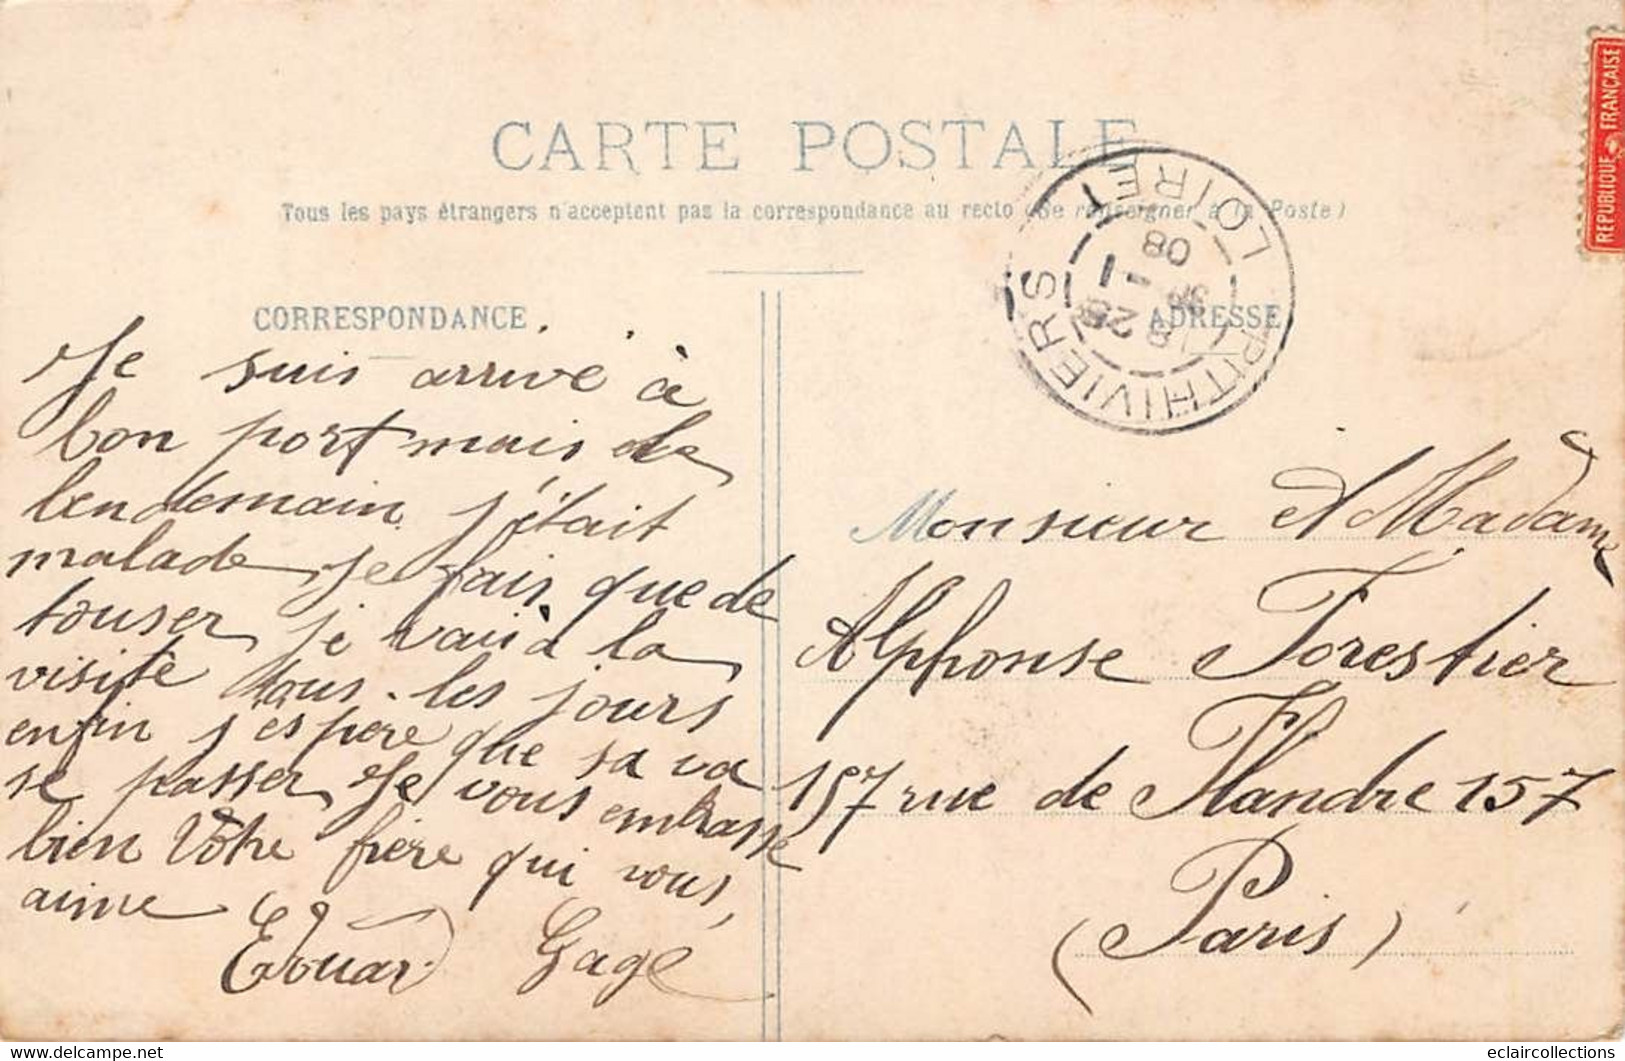 CARTE POSTALE
Tous les pays étrangers n'acceptent pas la correspondance au recto (Se renseigner à la Poste)
CORRESPONDANCE
Je suis arrivé à
bon port mais le
lendemain j'était
malade, je fais que de
touser, je vais à la
visite tous les jours
enfin j'éspére que sa va
se passer, Je vous embrasse
bien Votre frère qui vous
aime
Edouard Gagé
ADRESSE
PITHIVIERS
LOIRET
25 - 1
08
REPUBLIQUE FRANÇAISE
Monsieur et Madame
Alphonse Forestier
157 rue de Flandre 157
(Paris)
eclaircollections